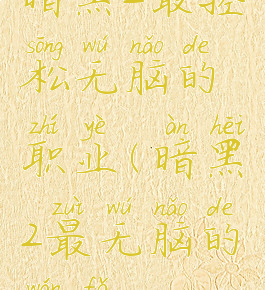 暗黑2最轻
sōng wú nǎo de
松无脑的
zhí yè àn hēi
职业(暗黑
zuì wú nǎo de
2最无脑的
wán fǎ